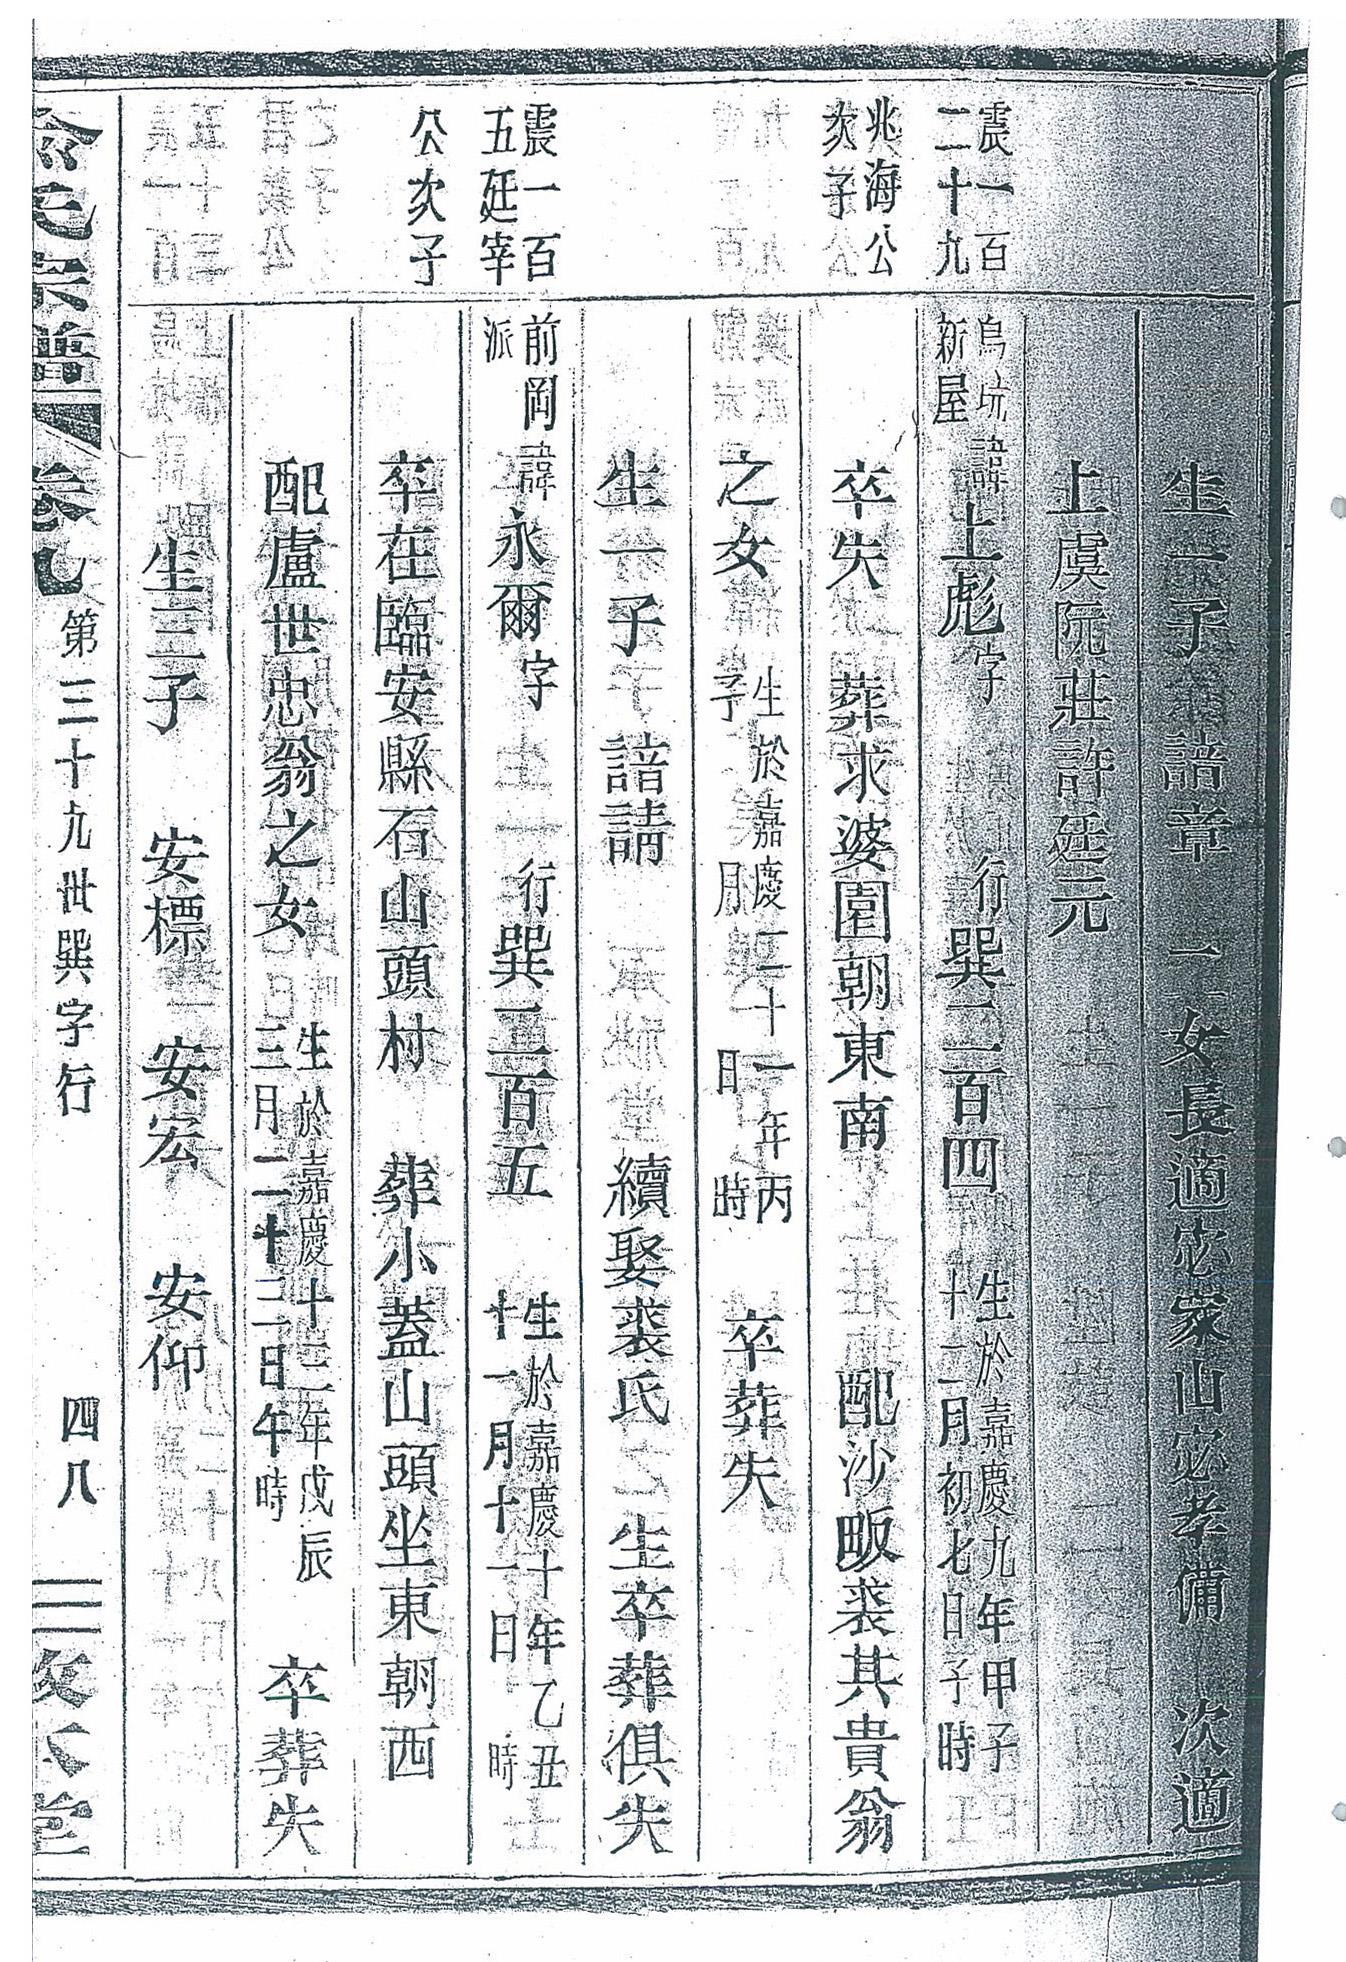 生一子 諳章 一女長適宓家山宓孝備 次適
上虞阮莊許廷元
震一百
二十九
烏坑
新屋
諱上彪字 行巽二百四 生於嘉慶九年甲子
十二月初七日子時
兆海公
次子
卒失 葬求婆園朝東南 配沙畈裘其貴翁
之女 生於嘉慶二十一年丙
子 月 日 時 卒葬失
生一子 諳請 續娶裘氏 生卒葬俱失
震一百
五廷宰
公次子
前岡
派
諱永爾字 行巽二百五 生於嘉慶十年乙丑
十一月十一日 時
卒在臨安縣石山頭村 葬小蓋山頭坐東朝西
配盧世忠翁之女 生於嘉慶十三年戊辰
三月二十三日午時 卒葬失
生三子 安標 安宏 安仰
氏宗譜 卷九 第三十九世巽字行 四八